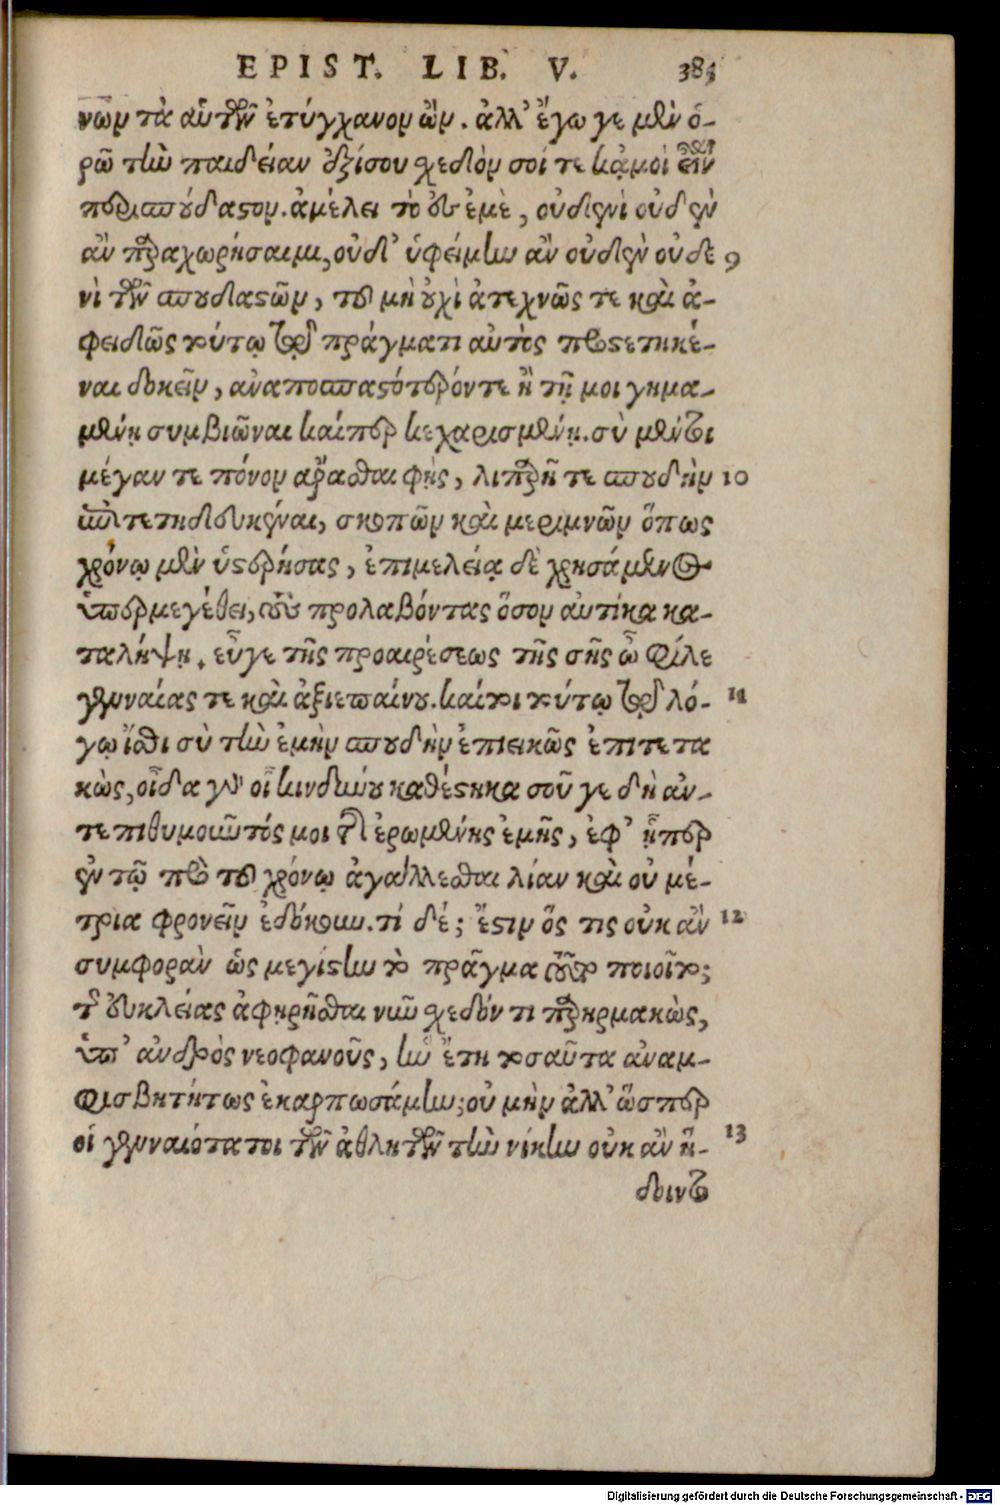 EPIST. LIB. V. 385
νων τὰ αὐτῶν ἐτύγχανον ὤν. ἀλλ' ἔγωγε μὲν ὁ-
ρῶ τὴν παιδείαν ἐξίσου χεδὸν σοί τε κᾀμοὶ εἶναι
περισπούδαστον. ἀμέλει τὸ ἐμὲ, οὐδενὶ οὐδὲν
ἂν παραχωρήσαιμι, οὐδ' ὑφείμην ἂν οὐδὲν οὐδε 9
νὶ τῶν σπουδαστῶν, τοῦ μὴ οὐχὶ ἀτεχνῶς τε καὶ ἀ-
φειδῶς τούτῳ τῷ πράγματι αὐτὸς προστετηκέ-
ναι δοκεῖν, ἀναποσπαστότερόν τε ἢ τῇ μοι γημα-
μένῃ συμβιῶναι καίπερ κεχαρισμένῃ. σὺ μέντοι
μέγαν τε πόνον ἄρασθαι φῂς, λιπαρῆ τε σπουδὴν 10
ἐπιτετηδευκέναι, σκοπῶν καὶ μεριμνῶν ὅπως
χρόνῳ μὲν ὑστερήσας, ἐπιμελείᾳ δὲ χρησάμενος
ὑπερμεγέθει, τοὺς προλαβόντας ὅσον αὐτίκα κα-
ταλήψῃ. εὖγε τῆς προαιρέσεως τῆς σῆς ὦ φίλε
γενναίας τε καὶ ἀξιεπαίνου. καίτοι τούτῳ τῷ λό- 11
γῳ ἴσθι σὺ τὴν ἐμὴν σπουδὴν ἐπιεικῶς ἐπιτετα
κὼς, οἶδα γὰρ οἷ κινδύνου καθέστηκα σοῦ γε δὴ ἀν-
τεπιθυμοῦντός μοι τῆς ἐρωμένης ἐμῆς, ἐφ' ᾗπερ
ἐν τῷ πρὸ τοῦ χρόνῳ ἀγάλλεσθαι λίαν καὶ οὐ μέ-
τρια φρονεῖν ἐδόκουν. τί δέ; ἔστιν ὅς τις οὐκ ἂν 12
συμφορὰν ὡς μεγίστην τὸ πρᾶγμα τοῦτο ποιοῖτο;
τῆς εὐκλείας ἀφῃρῆσθαι νῦν χεδόν τι παρηκμακὼς,
ὑπ' ἀνδρὸς νεοφανοῦς, ἣν ἔτη τοσαῦτα ἀναμ-
φισβητήτως ἐκαρπωσάμην; οὐ μὴν ἀλλ' ὥσπερ
οἱ γενναιότατοι τῶν ἀθλητῶν τὴν νίκην οὐκ ἂν ἥ- 13
δοιντο